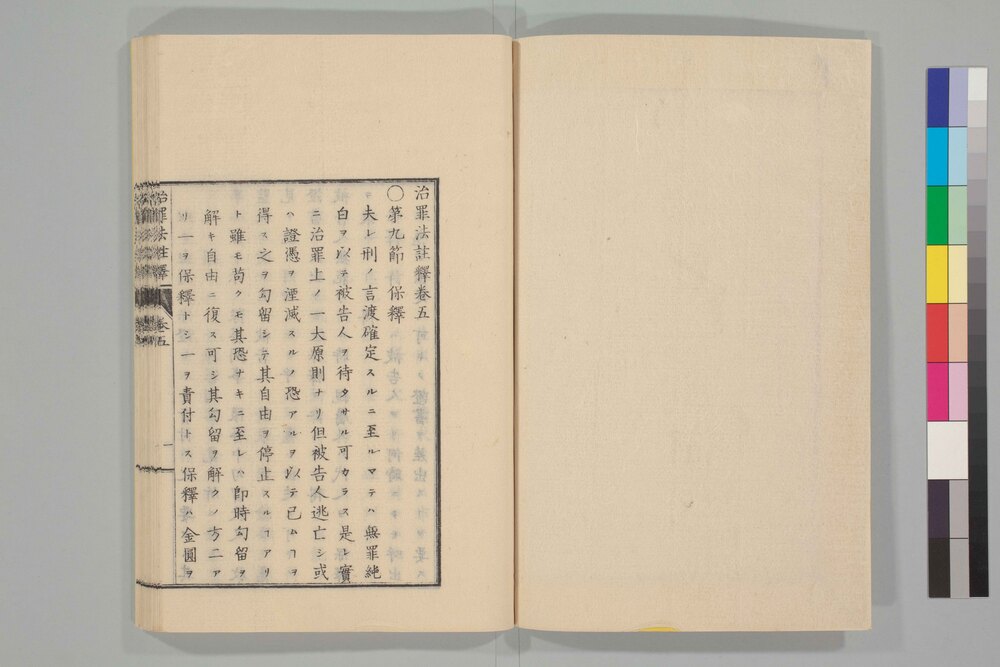 治罪法註釋卷五
〇第九節 保釋
夫レ刑ノ言渡確定スルニ至ルマテハ無罪純
白ヲ以テ被告人ヲ待タサル可カラス是レ實
ニ治罪上ノ一大原則ナリ但被告人逃亡シ或
ハ證憑ヲ湮滅スルノ恐アルヲ以テ已ムヿヲ
得ス之ヲ勾留シテ其自由ヲ停止スルヿアリ
ト雖モ苟クモ其恐ナキニ至レハ卽時勾留ヲ
解キ自由ニ復ス可シ其勾留ヲ解クノ方二ア
リ一ヲ保釋トシ一ヲ責付トス保釋ハ金圓ヲ
治罪法註釋 卷五 一